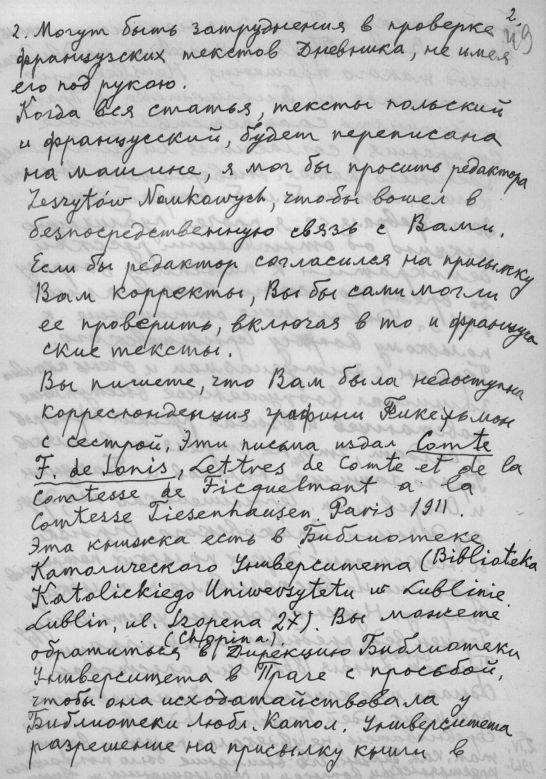 2.
49
2. Могут быть затруднения в проверке
французских текстов Дневника, не имея
его под рукою.
Когда вся статья, тексты польский
и французский, будет переписана
на машине, я мог бы просить редактора
Zeszytów Naukowych, чтобы вошел в
безпосредственную связь с Вами.
Если бы редактор согласился на присылку
Вам корректы, Вы бы сами могли
ее проверить, включая в то и француз
ские тексты.
Вы пишете, что Вам была недоступна
корреспонденция графини Фикельмон
с сестрой. Эти письма издал Comte
F. de Sonis, Lettres de Comte et de la
Comtesse de Ficquelmont a la
Comtesse Tiesenhausen, Paris 1911.
Эта книжка есть в Библиотеке
Католического Университета (Biblioteka
Katolickiego Uniwersytetu w Lublinie.
Lublin, ul. Szopena 27). Вы можете
(Chopina)
обратиться в Дирекцию Библиотеки
Университета в Праге с просьбой,
чтобы она исходатайствовала у
Библиотеки Любл. Катол. Университета
разрешение на присылку книги в